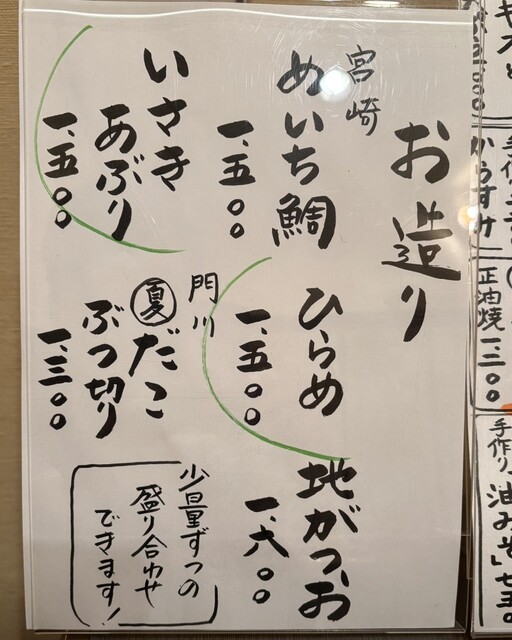 お造り
宮崎
めいち鯛
一、五〇〇
ひらめ
一、五〇〇
地がつお
一、六〇〇
いさき
あぶり
一、五〇〇
門川
夏だこ
ぶつ切り
一、三〇〇
少量ずつの
盛り合わせ
できます!
からすみ
正油焼
一、三〇〇
手作り
油みそ